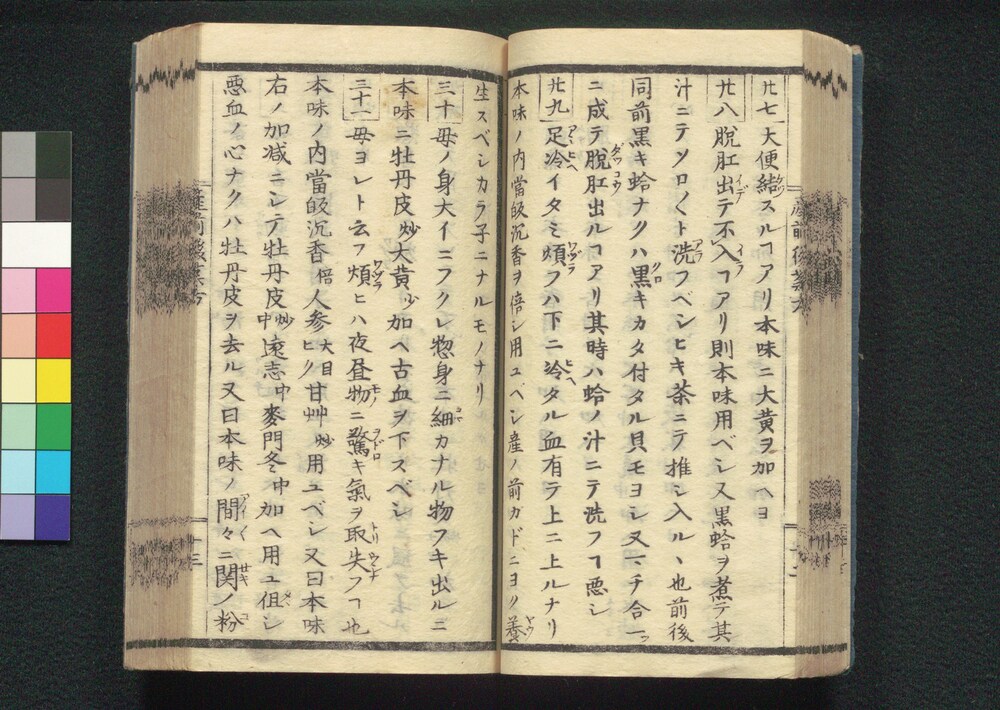 廿七 大便結スルヿアリ本味ニ大黄ヲ加ヘヨ
廿八 脱肛出テ不入ヿアリ則本味用ベシ又黒蛤ヲ煮テ其
汁ニテソロ〱ト洗フベシヒキ茶ニテ推シ入ルヽ也前後
同前黒キ蛤ナクハ黒キカタ付タル貝モヨシ又一チ合一
ニ成テ脱肛出ルヿアリ其時ハ蛤ノ汁ニテ洗フヿ悪シ
廿九 足冷イタミ煩フハ下ニ冷タル血有テ上ニ上ルナリ
本味ノ内當皈沉香ヲ倍シ用ユベシ産ノ前カドニヨリ養
生スベシカラ子ニナルモノナリ
三十 母ノ身大イニフクレ惣身ニ細カナル物フキ出ルニ
本味ニ牡丹皮炒大黄少加ヘ古血ヲ下スベシ
三十一 母ヨレト云フ煩ヒハ夜昼物ニ驚キ氣ヲ取失フヿ也
本味ノ内當皈沉香倍人参大目ヒク甘艸炒用ユベシ又曰本味
右ノ加減ニシテ牡丹皮炒中遠志中麥門冬中加ヘ用ユ但シ
悪血ノ心ナクハ牡丹皮ヲ去ル又曰本味ノ間々ニ関ノ粉